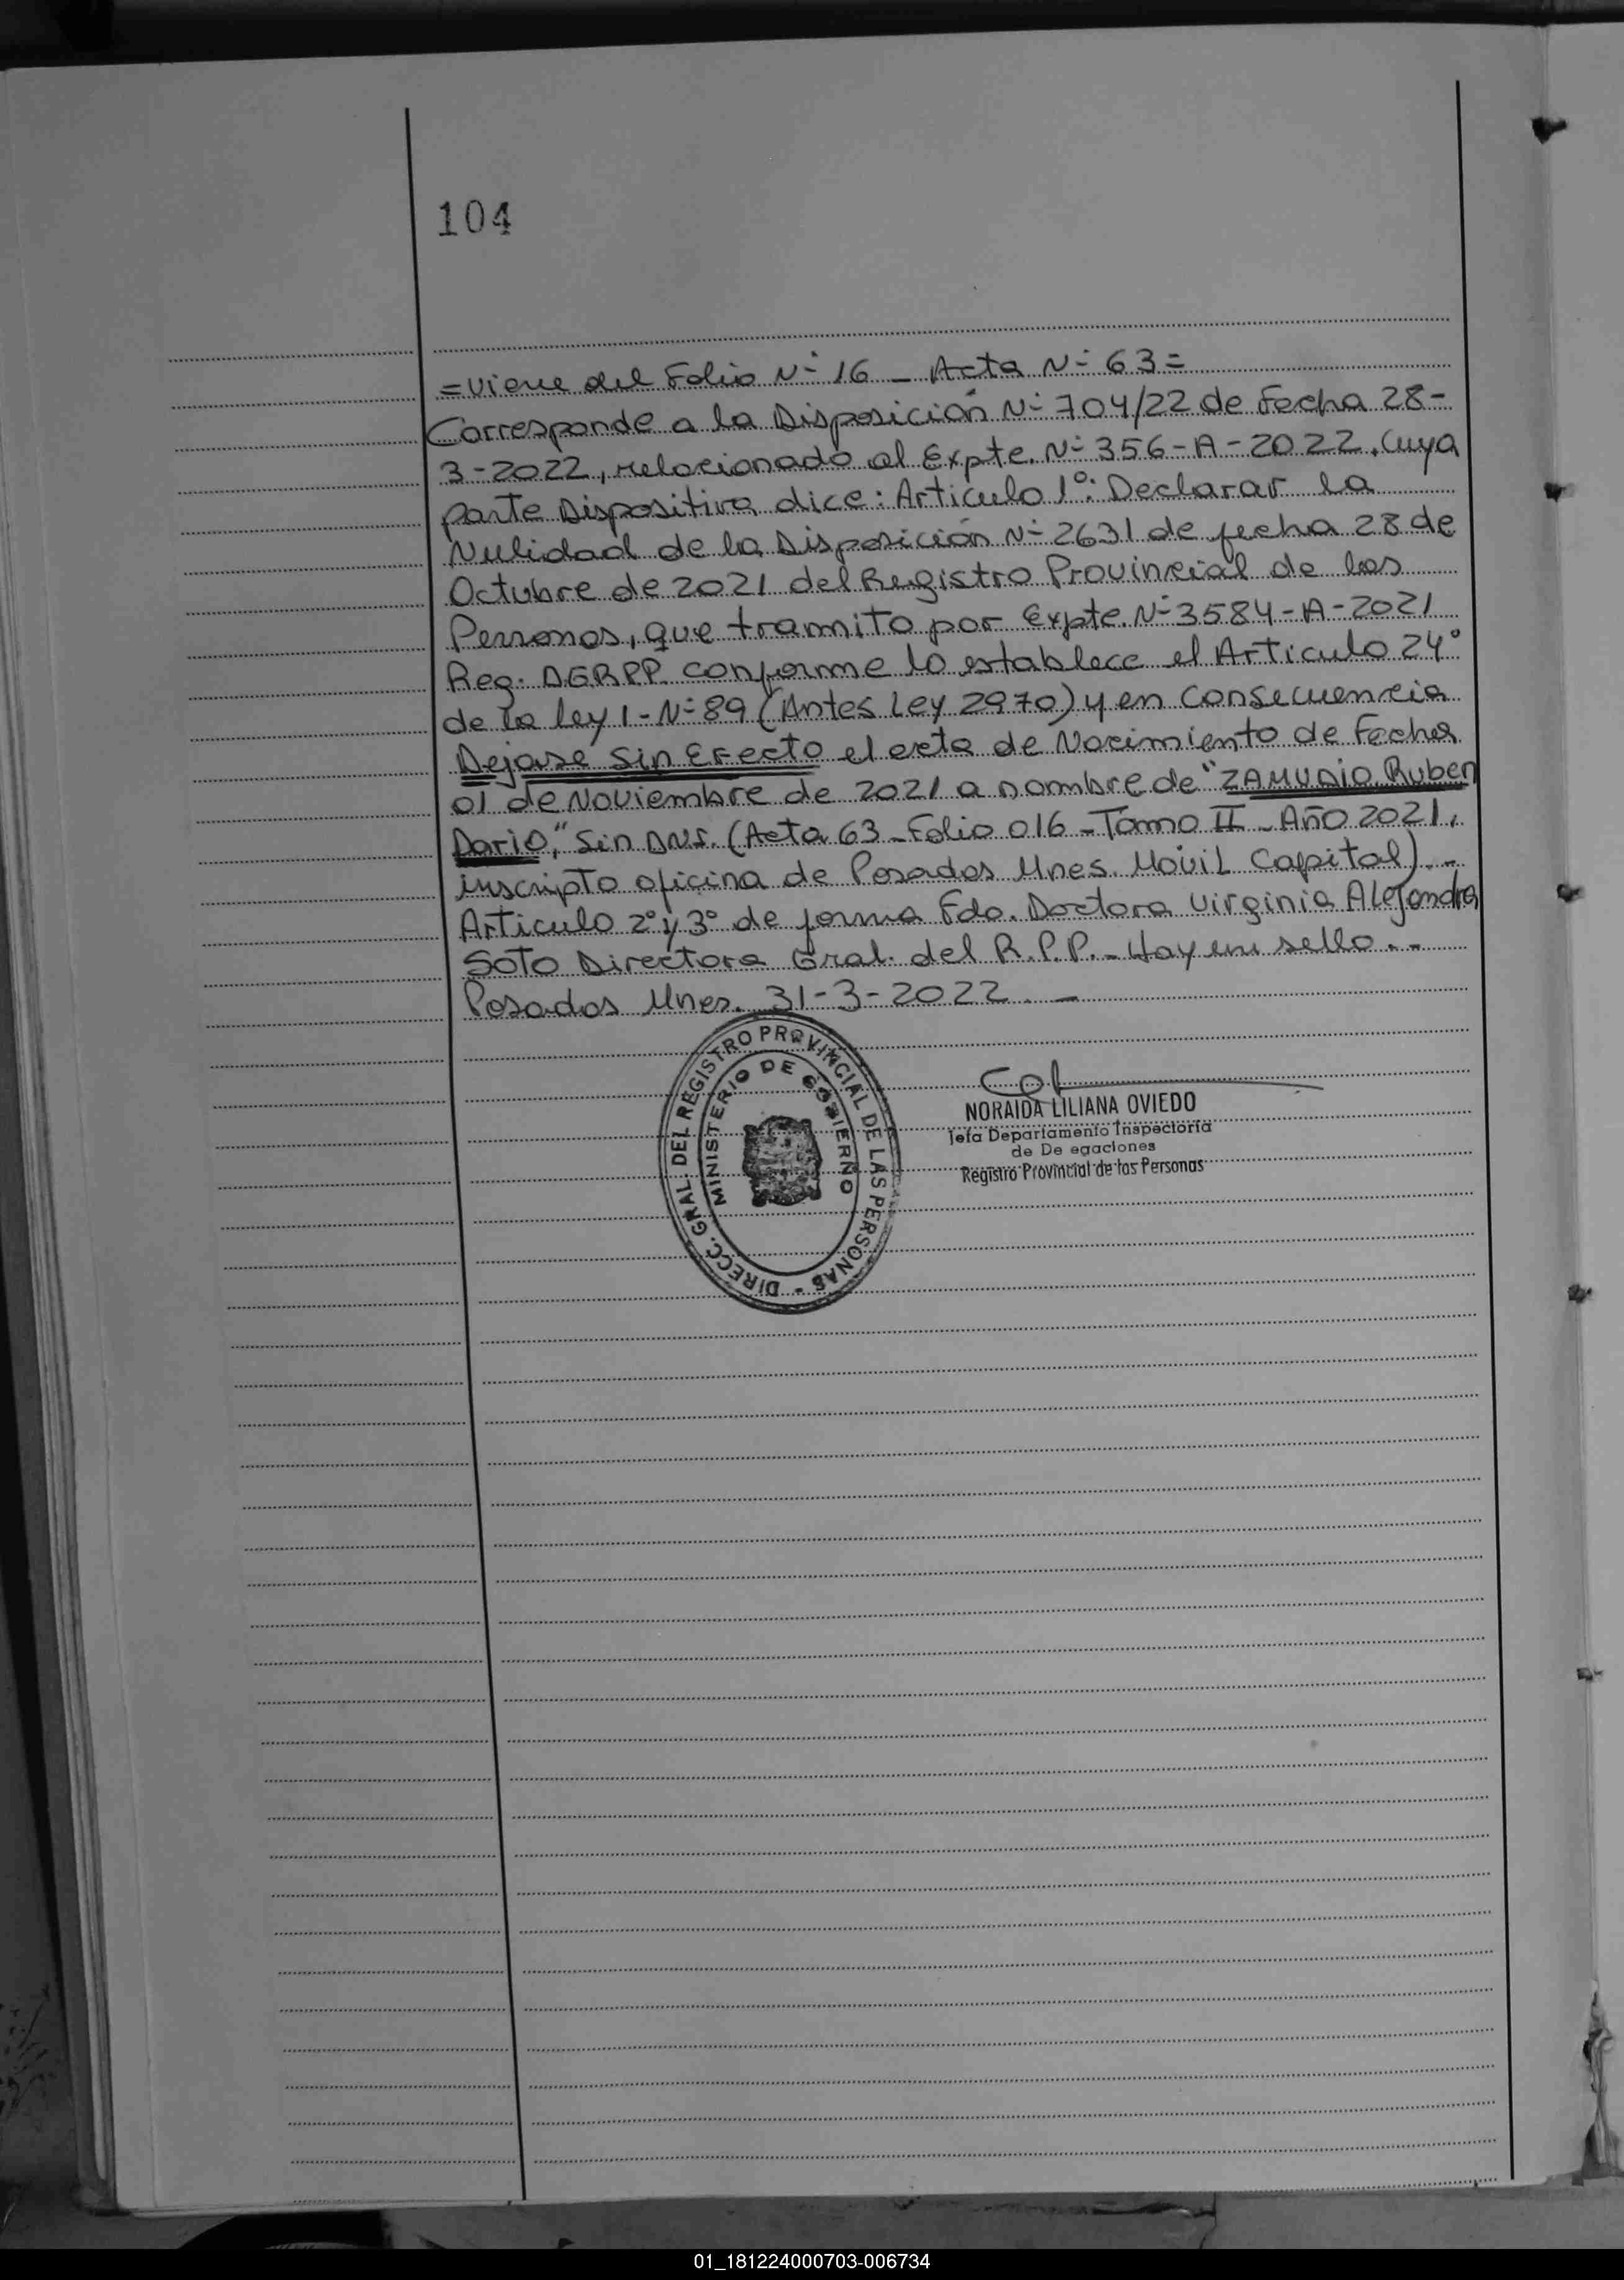 104
=Viene del Folio N° 16 - Acta N° 63=
Corresponde a la Disposición N° 704/22 de Fecha 28-
3-2022, relacionado al Expte. N° 356-A-2022. Cuya
parte Dispositiva dice: Artículo 1°: Declarar la
Nulidad de la Disposición N° 2631 de fecha 28 de
Octubre de 2021 del Registro Provincial de las
Personas, que tramito por Expte. N° 3584-A-2021
Reg. DGRPP. conforme lo establece el Articulo 24°
de la ley I - N° 89 (Antes Ley 2970) y en Consecuencia
Dejase Sin Efecto el acta de Nacimiento de Fecha
01 de Noviembre de 2021 a nombre de "ZAMUDIO Ruben
Dario," Sin DNI. (Acta 63 - Folio 016 - Tomo II - Año 2021,
inscripto oficina de Posadas Mnes. Movil Capital). -
Articulo 2° y 3° de forma Fdo. Doctora Virginia Alejandra
Soto Directora Gral. del R.P.P. - Hay un sello. -
Posadas Mnes. 31-3-2022. -
DIRECC. GRAL. DEL REGISTRO PROVINCIAL DE LAS PERSONAS -
MINISTERIO DE GOBIERNO
NORAIDA LILIANA OVIEDO
Jefa Departamento Inspectoria
de De egaciones
Registro Provincial de las Personas
01_181224000703-006734